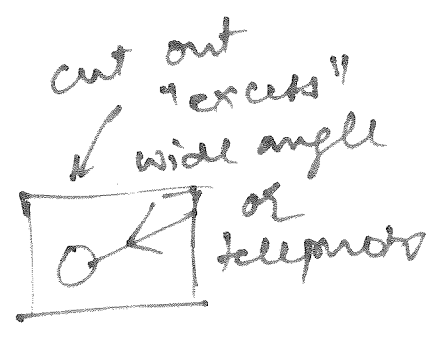 cut out
"excess"
wide angle
or
telephoto